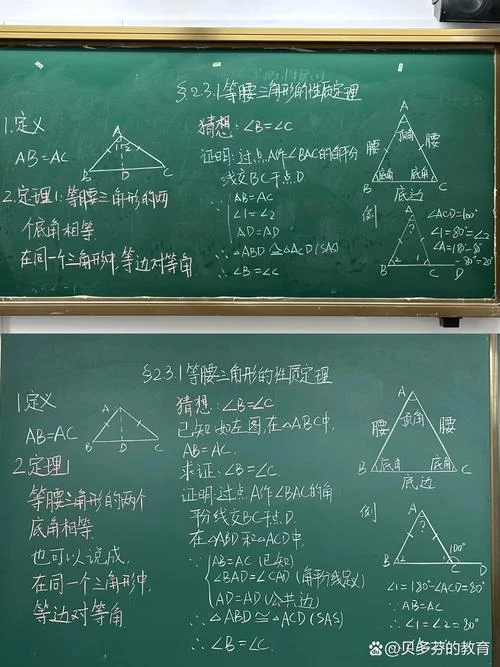 §.2.3.1等腰三角形的性质定理
1.定义
AB=AC
A
1 2
B D C
2.定理1:等腰三角形的两
个底角相等.
在同一个三角形中,等边对等角
猜想:∠B=∠C
证明:过点A作∠BAC的角平分
线交BC于点D
∵ AB=AC
∠1=∠2
AD=AD
∴△ABD≌△ACD(SAS)
∴∠B=∠C
A
腰 顶角 腰
底角 底角
B C
底边
例
A
2 1
B C D
∠ACD=100°
∠1=80°=∠2
§2.3.1等腰三角形的性质定理
1.定义
AB=AC
A
B D C
2.定理1
等腰三角形的两个
底角相等.
也可以说成,
在同一个三角形中,
等边对等角
猜想:∠B=∠C
已知:如左图,在△ABC中,
AB=AC.
求证:∠B=∠C.
证明:过点A作∠BAC的角
平分线交BC于点D.
在△ABD和△ACD中,
∵ AB=AC(已知)
∠BAD=∠CAD(角平分线定义)
AD=AD(公共边)
∴△ABD≌△ACD(SAS)
∴∠B=∠C.
A
腰 顶角 腰
底角 底角
B C
底边
例
A
?
2 1 100°
B C D
∠1=180°-∠ACD=80°
∵AB=AC
∴∠1=∠2=80°
@贝多芬的教育